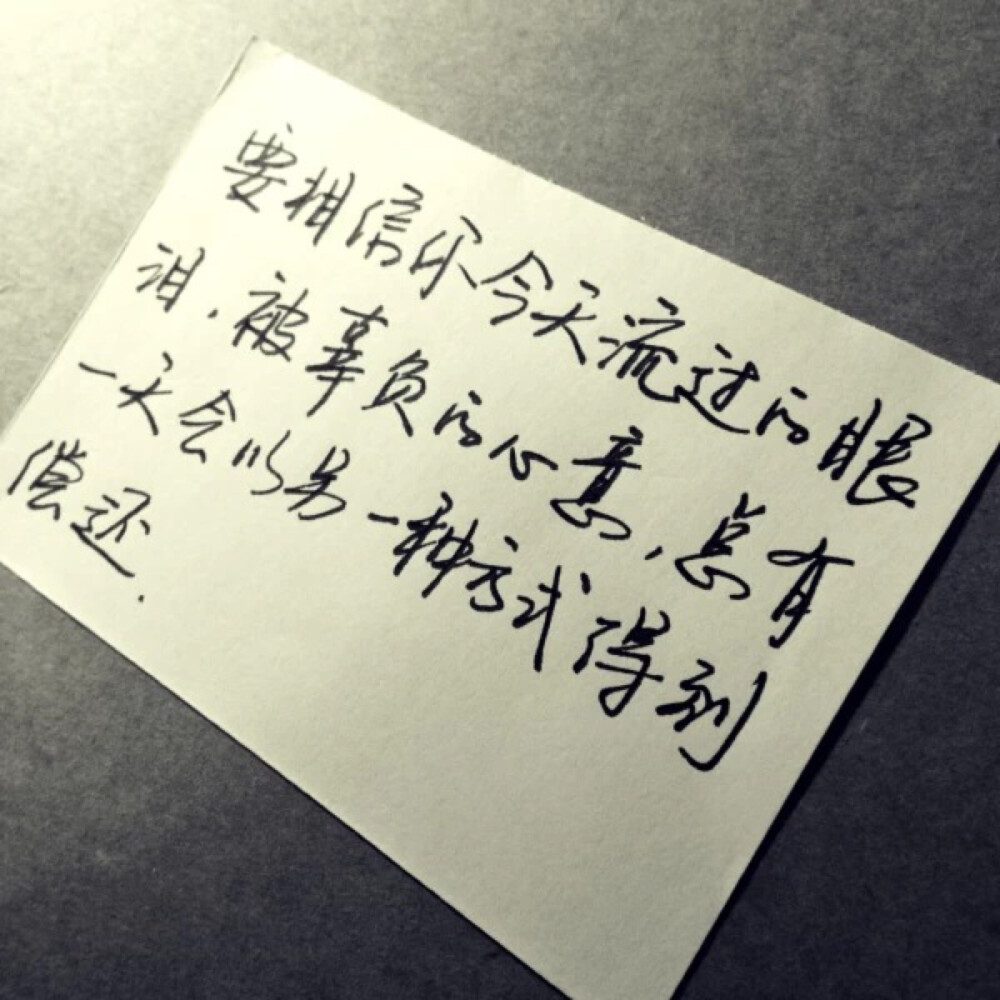 要相信你今天流过的眼
泪.被辜负的心意,总有
一天会以另一种方式得到
偿还.